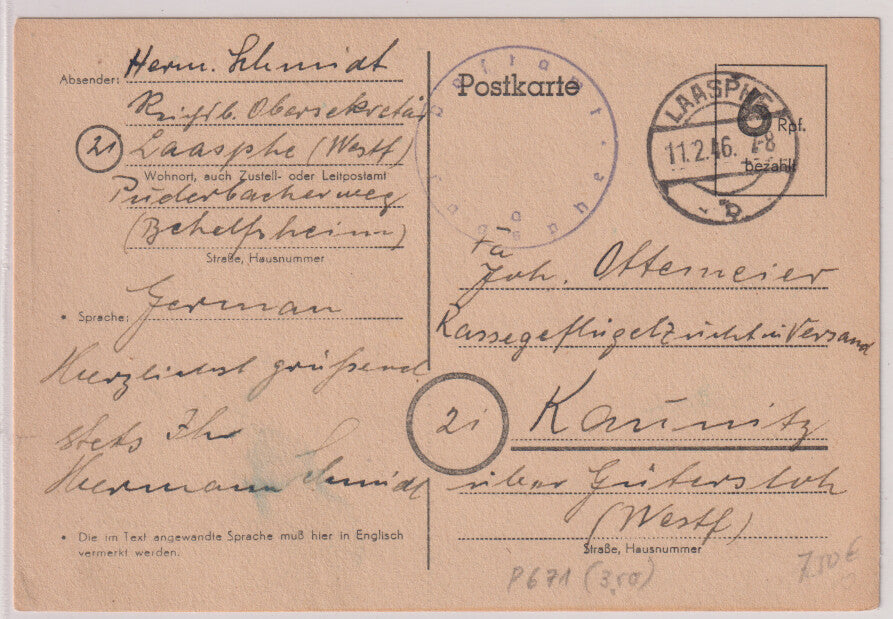 Absender: Herm. Schmidt
Reichsb. Obersekretär
21 Laasphe (Westf)
Wohnort, auch Zustell- oder Leitpostamt
Puderbacherweg
(Behelfsheim)
Straße, Hausnummer
• Sprache: German
Herzlichst grüßend
stets Ihr
Hermann Schmidt
• Die im Text angewandte Sprache muß hier in Englisch
vermerkt werden.
Postkarte
LAASPHE
11.2.46. 7-8
b
6 Rpf.
bezahlt
Fa
Joh. Ottemeier
Rassegeflügelzucht u Versand
21 Kaunitz
über Gütersloh
(Westf)
Straße, Hausnummer
P671 (3,50)
7.50€